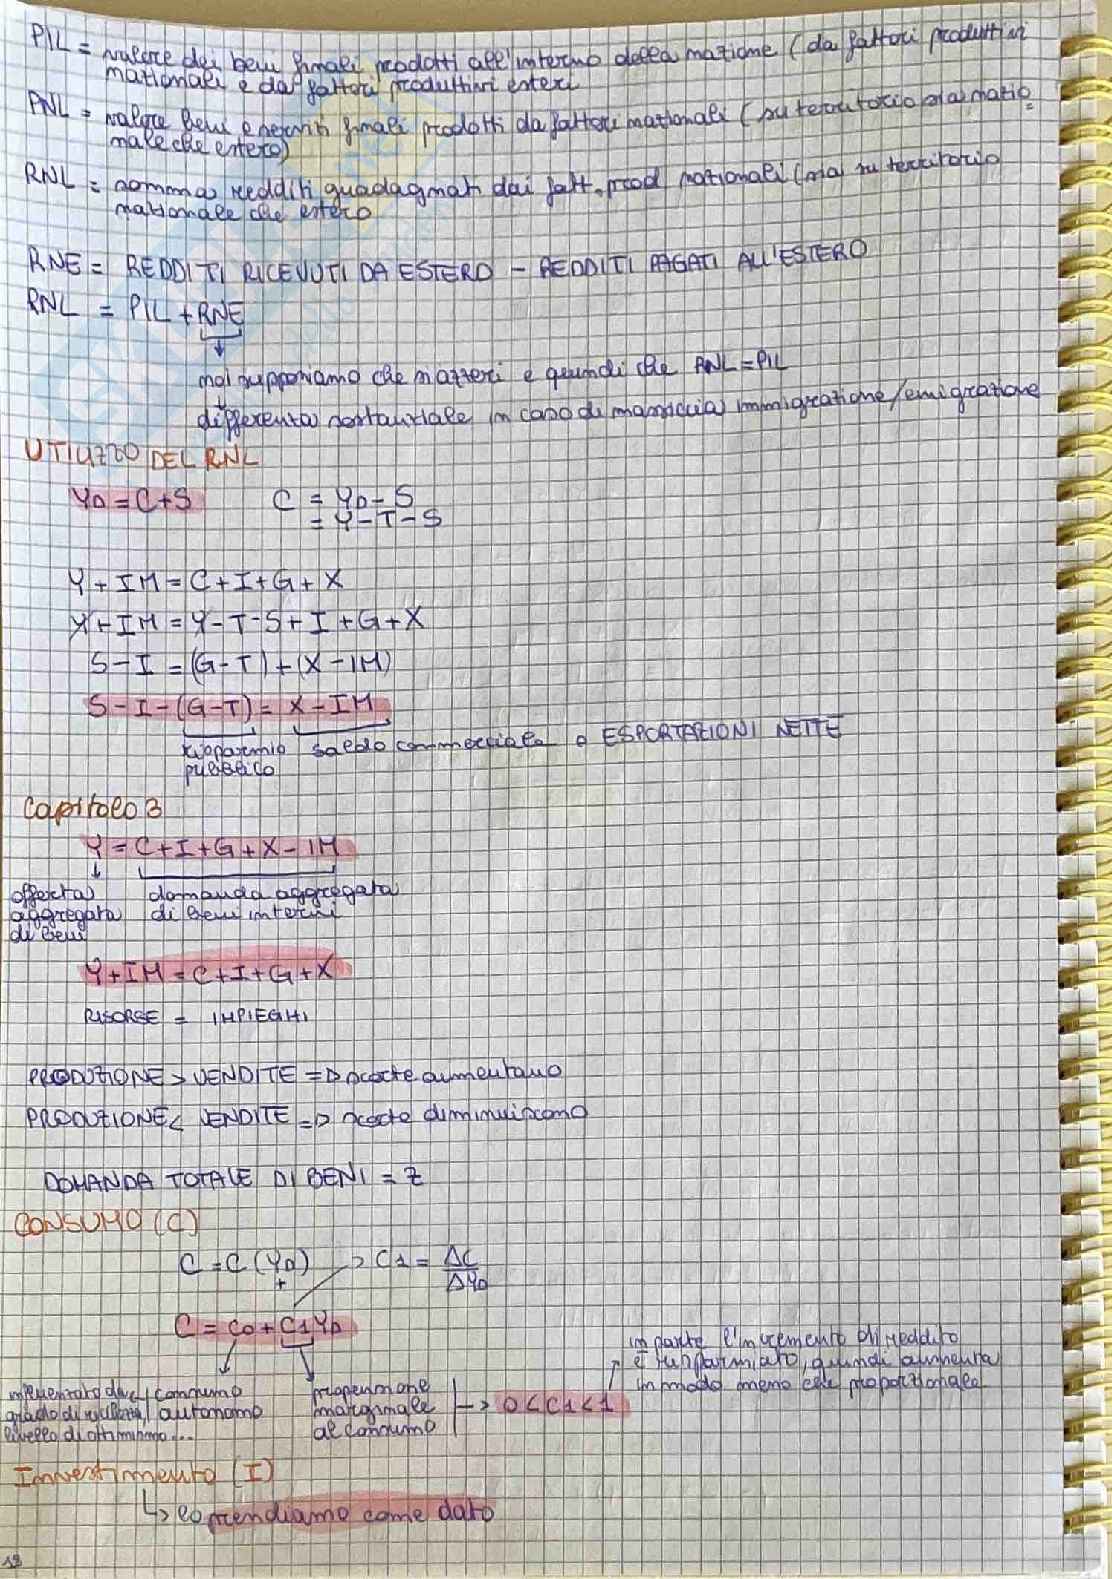 PIL = valore dei beni finali prodotti all'interno della nazione (da fattori produttivi
nazionali e da fattori produttivi esteri
PNL = valore beni e servizi finali prodotti da fattori nazionali (su territorio sia nazio=
nale che estero)
RNL = somma redditi guadagnati dai fatt. prod nazionali (sia su territorio
nazionale che estero
RNE = REDDITI RICEVUTI DA ESTERO - REDDITI PAGATI ALL'ESTERO
RNL = PIL + RNE
noi supponiamo che si azzeri e quindi che RNL = PIL
differenza sostanziale in caso di massiccia immigrazione/emigrazione
UTILIZZO DEL RNL
YD = C+S C = YD - S
= Y - T - S
Y + IM = C + I + G + X
Y + IM = Y - T - S + I + G + X
S - I = (G - T) + (X - IM)
S - I - (G - T) = X - IM
risparmio pubblico saldo commerciale o ESPORTAZIONI NETTE
Capitolo 3
Y = C + I + G + X - IM
offerta domanda aggregata
aggregata di beni interni
di beni
Y + IM = C + I + G + X
RISORSE = IMPIEGHI
PRODUZIONE > VENDITE => scorte aumentano
PRODUZIONE < VENDITE => scorte diminuiscono
DOMANDA TOTALE DI BENI = Z
CONSUMO (C)
C = C (YD) → C1 = ΔC/ΔYD
+
C = C0 + C1YD
in parte l'incremento di reddito
è risparmiato, quindi aumenta
in modo meno che proporzionale
influenzato da consumo propensione
grado di autonomo marginale → 0 < C1 < 1
livello di ottimismo... al consumo
Investimento (I)
↳ lo prendiamo come dato